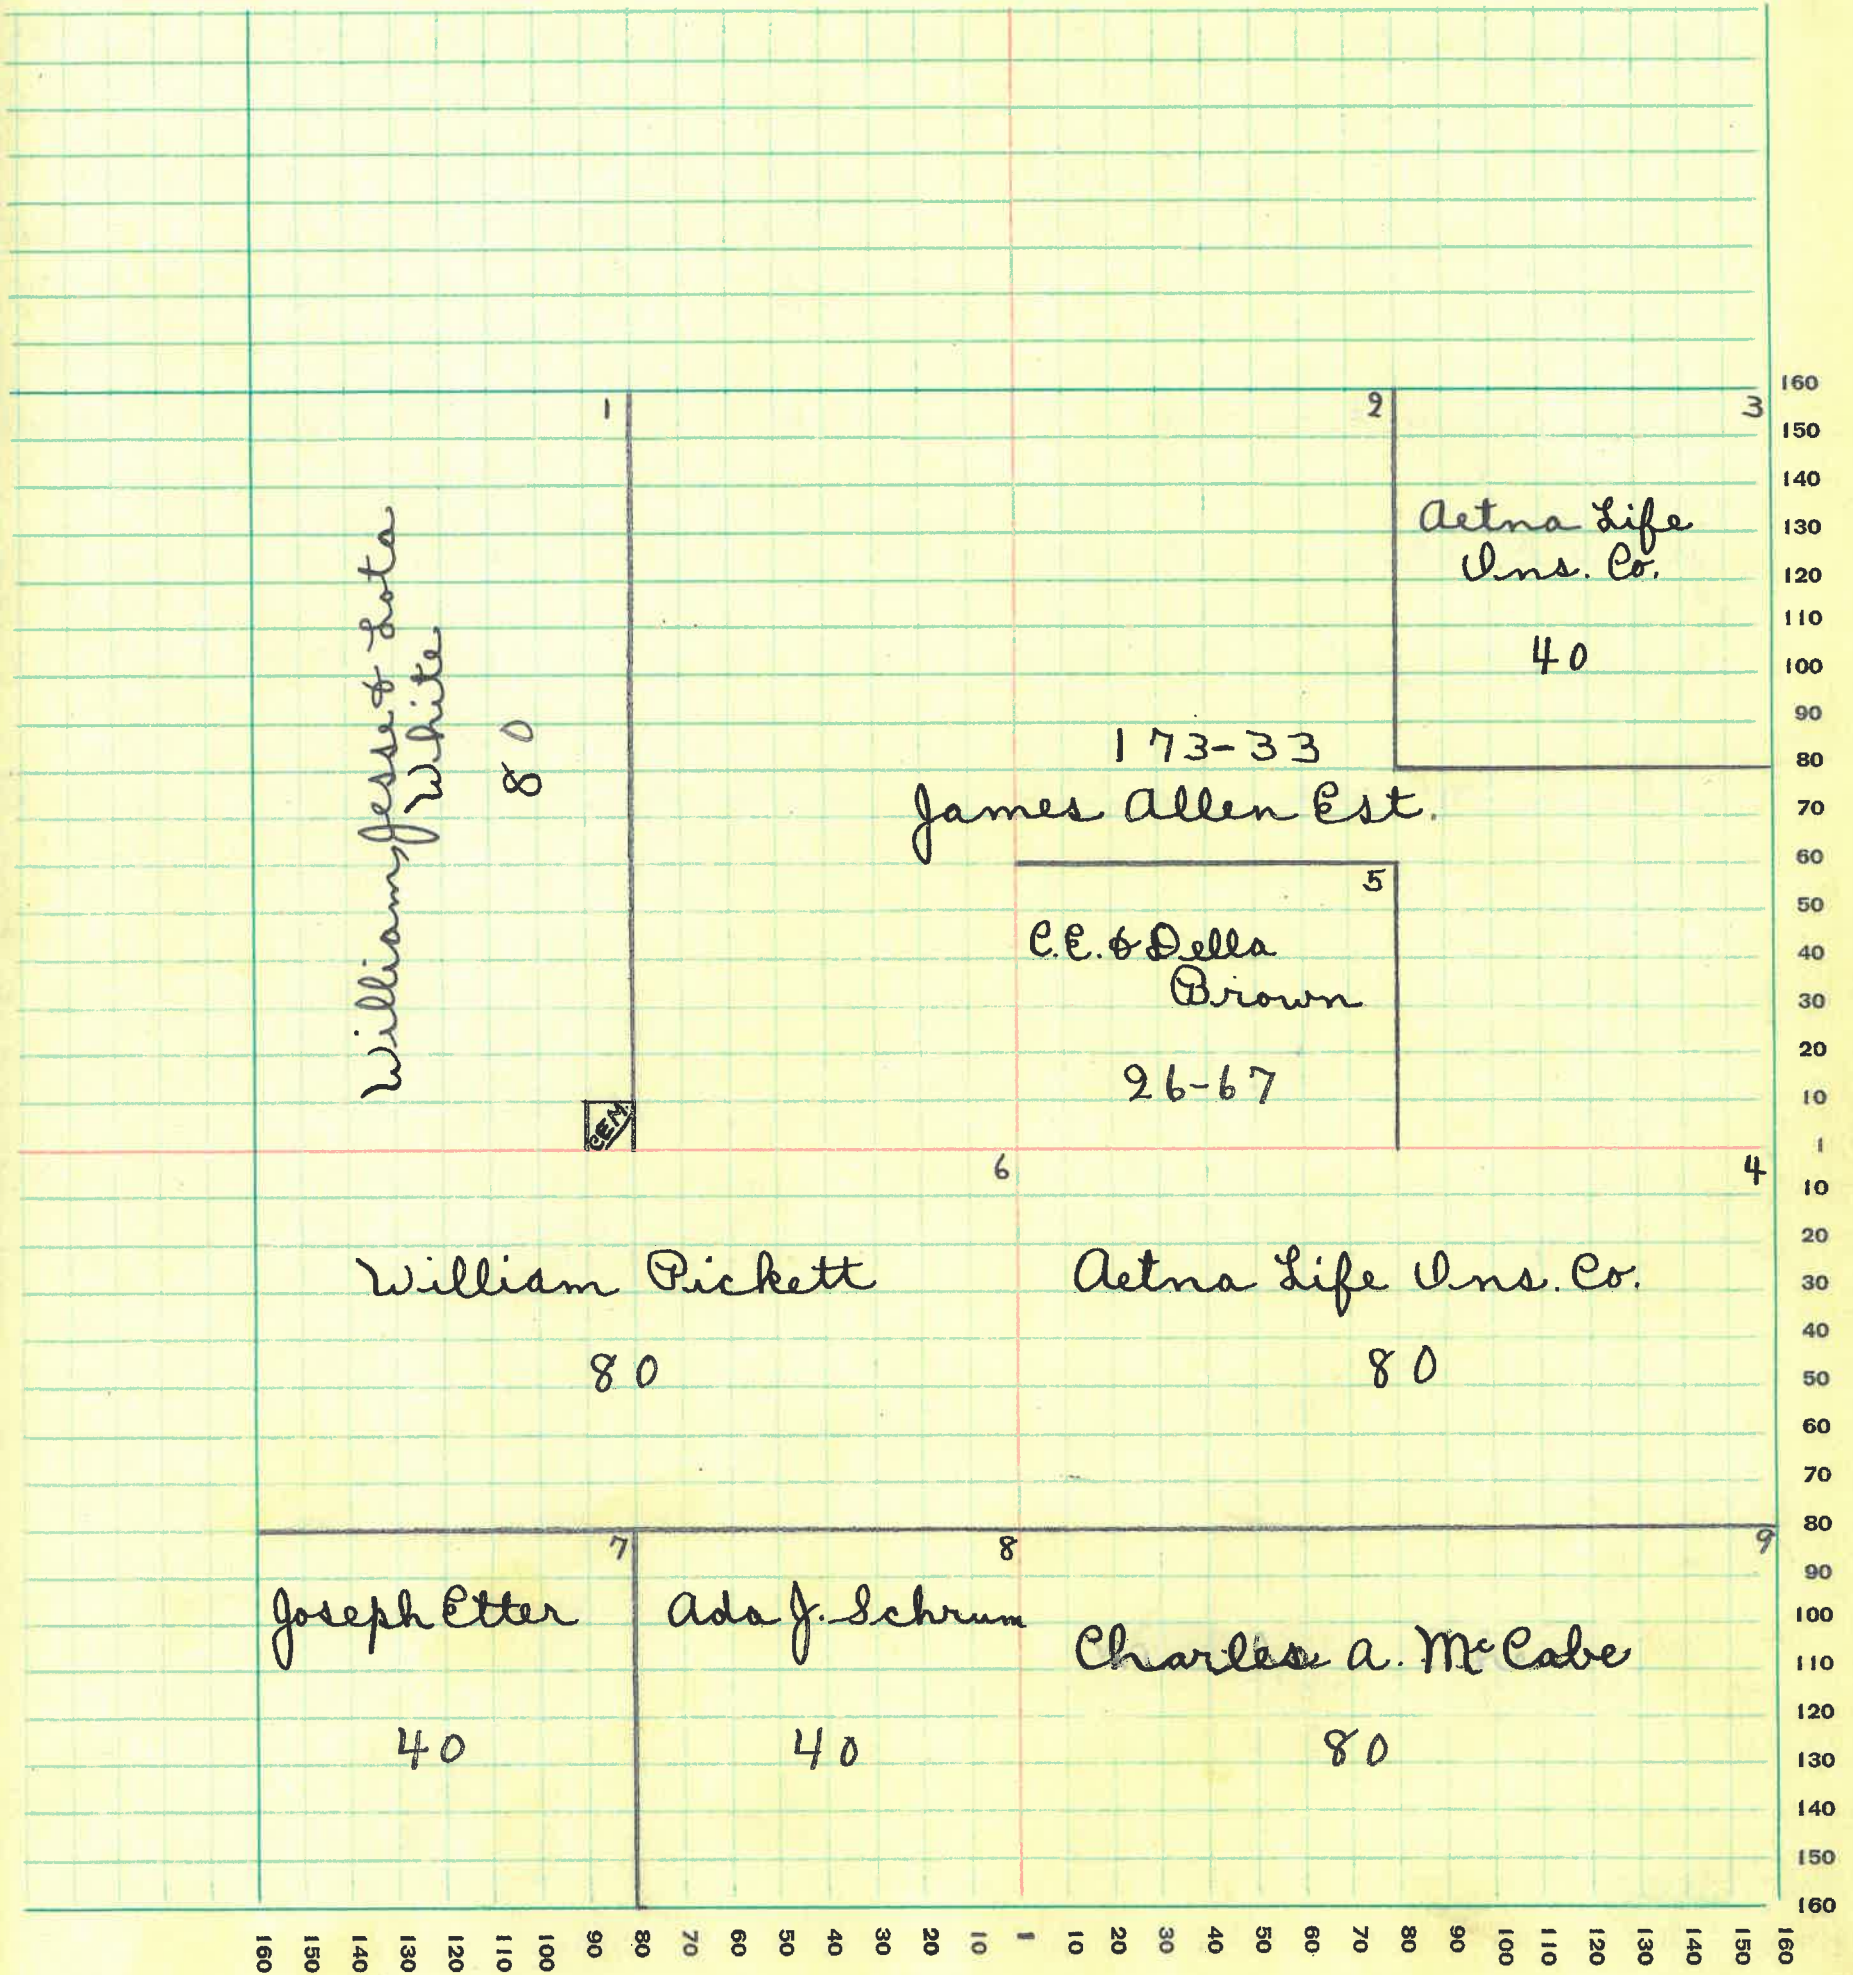 1
2
3
William, Jesse & Lota
White
80
Aetna Life
Ins. Co.
40
173-33
James Allen Est.
5
C.E. & Della
Brown
26-67
CEM.
6
4
William Pickett
80
Aetna Life Ins. Co.
80
7
8
9
Joseph Etter
40
Ada J. Schrum
40
Charles A. McCabe
80
160
150
140
130
120
110
100
90
80
70
60
50
40
30
20
10
1
10
20
30
40
50
60
70
80
90
100
110
120
130
140
150
160
160 150 140 130 120 110 100 90 80 70 60 50 40 30 20 10 1 10 20 30 40 50 60 70 80 90 100 110 120 130 140 150 160